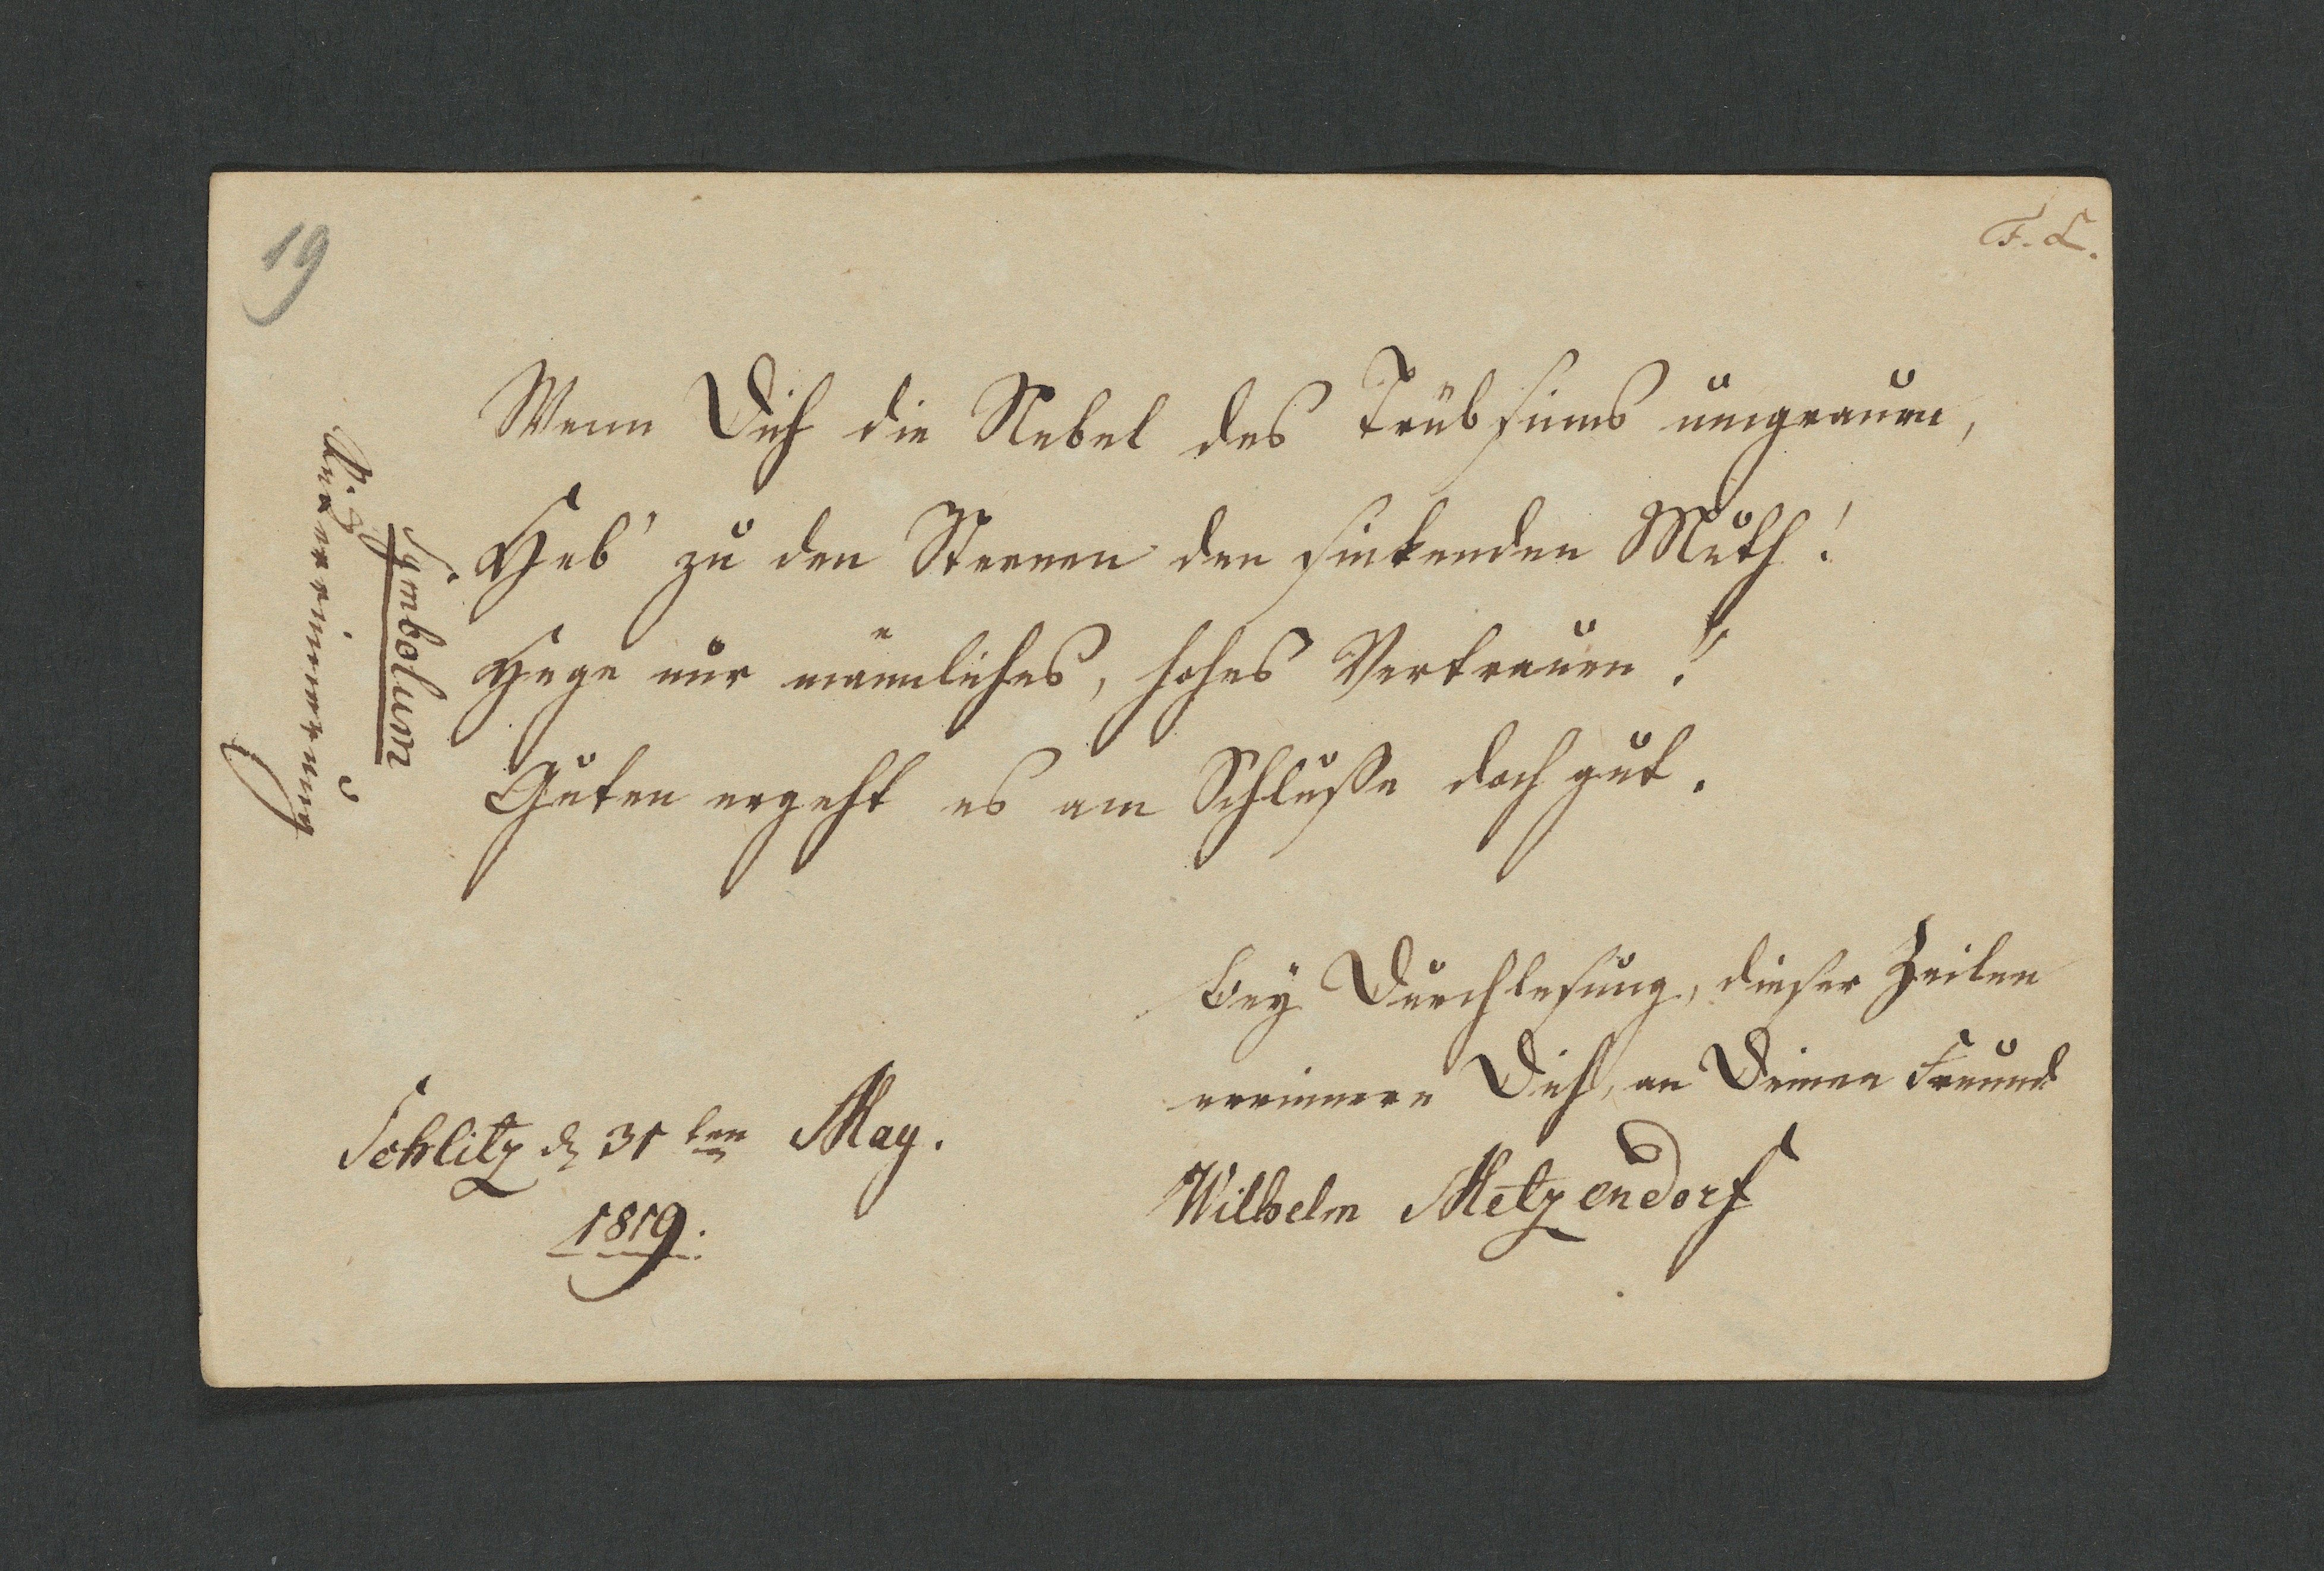 19
F. L.
Wenn Dich die Nebel des Trübsinns umgrauen,
Heb' zu den Sternen den sinkenden Muth!
Hege nur männliches, hohes Vertrauen!
Guten ergeht es am Schluße doch gut.
Symbolum
Bey Durchlesung, dieser Zeilen
errinnere Dich, an Deinen Freund
Wilhelm Metzendorf
Schlitz d 31ten May.
1819.